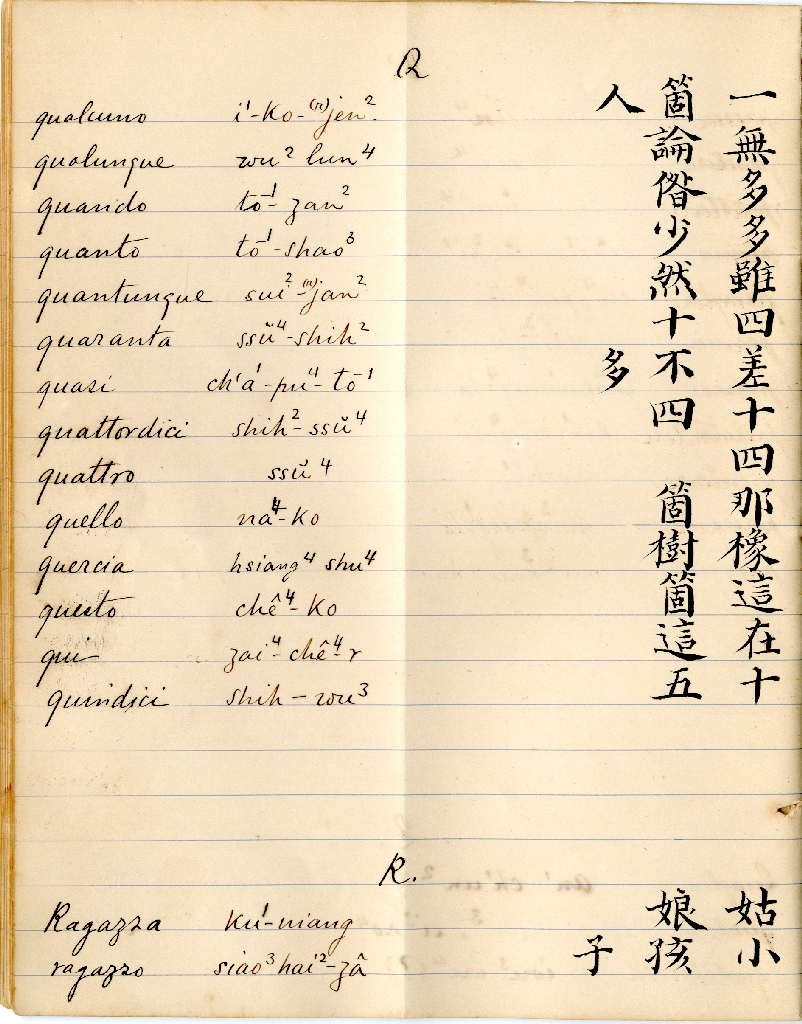 Q
qualcuno i¹-ko-⁽ʳ⁾jen². 一箇人
qualunque wu² lun⁴ 無論
quando to-¹ zan² 多偺
quanto to-¹-shao³ 多少
quantunque sui²-⁽ʳ⁾jan² 雖然
quaranta ssŭ⁴-shih² 四十
quasi ch'a¹-pu⁴-to-¹ 差不多
quattordici shih²-ssŭ⁴ 十四
quattro ssŭ⁴ 四
quello na⁴-ko 那箇
quercia hsiang⁴ shu⁴ 橡樹
questo chê⁴-ko 這箇
qui zai⁴-chê⁴-r 在這
quindici shih-wu³ 十五
R.
Ragazza ku¹-niang 姑娘
ragazzo siao³ hai²-zâ 小孩子